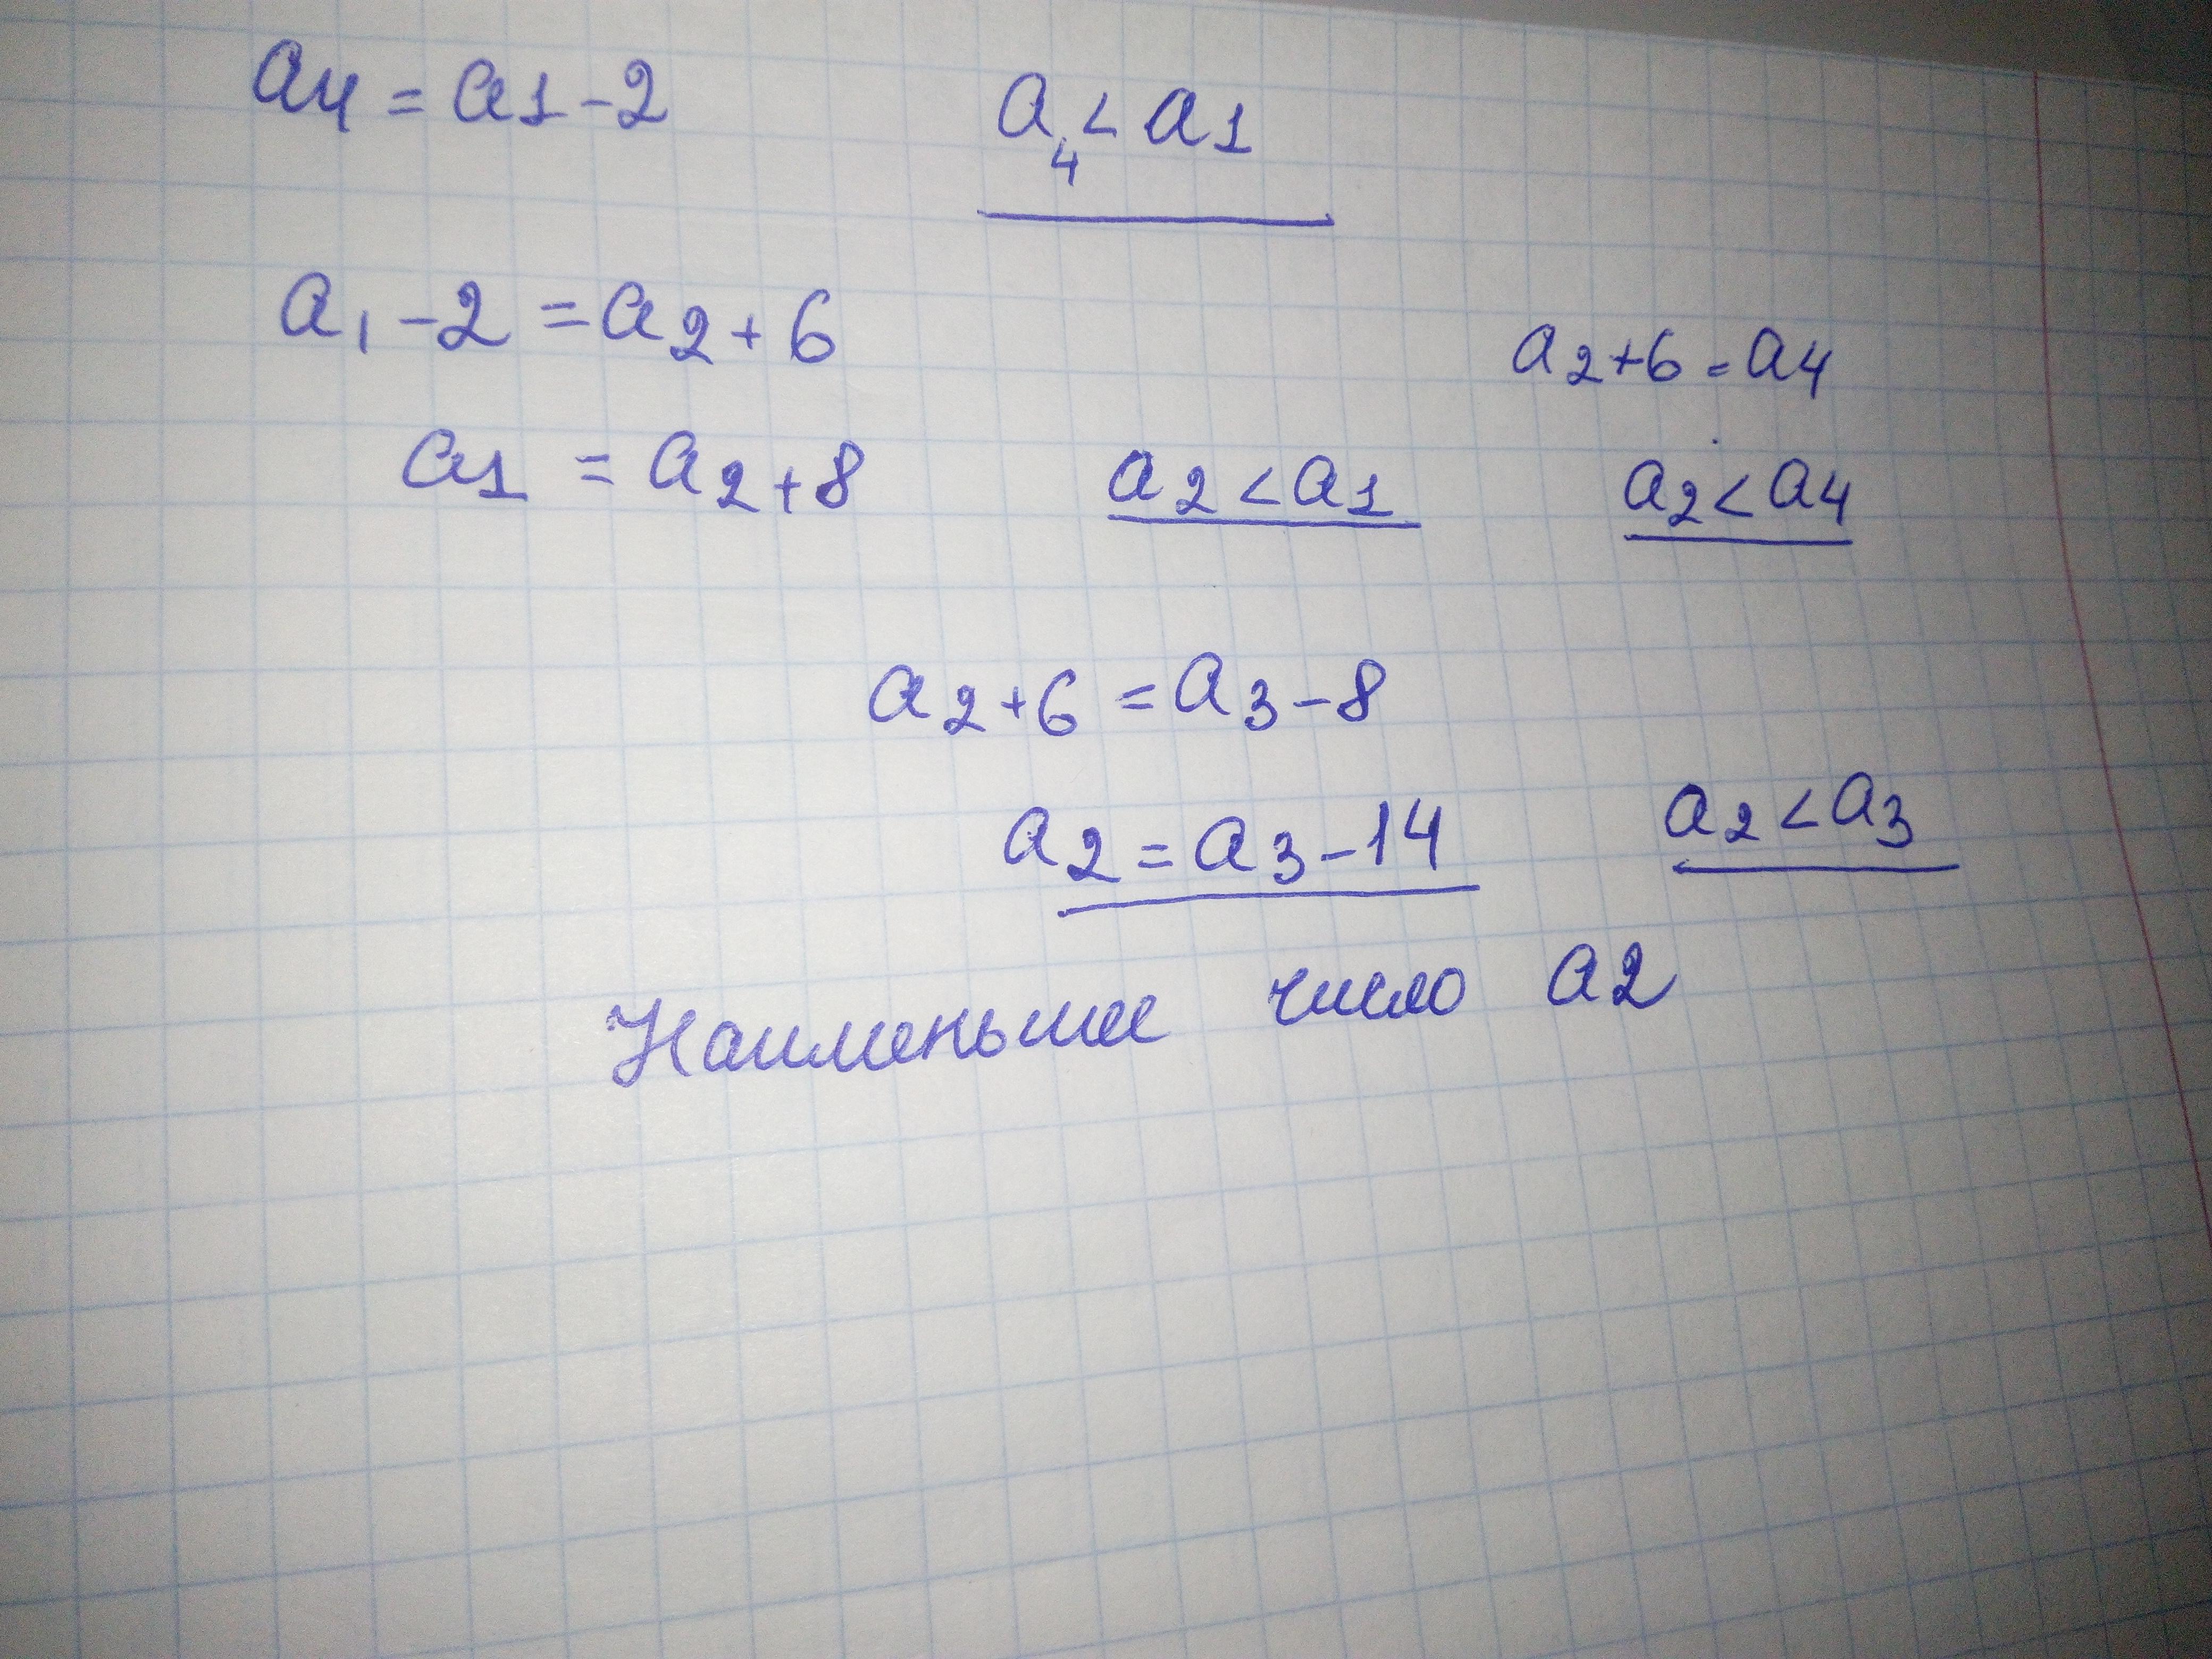 a4 = a1 - 2 a4 < a1
a1 - 2 = a2 + 6 a2 + 6 = a4
a1 = a2 + 8 a2 < a1 a2 < a4
a2 + 6 = a3 - 8
a2 = a3 - 14 a2 < a3
Наименьшее число a2